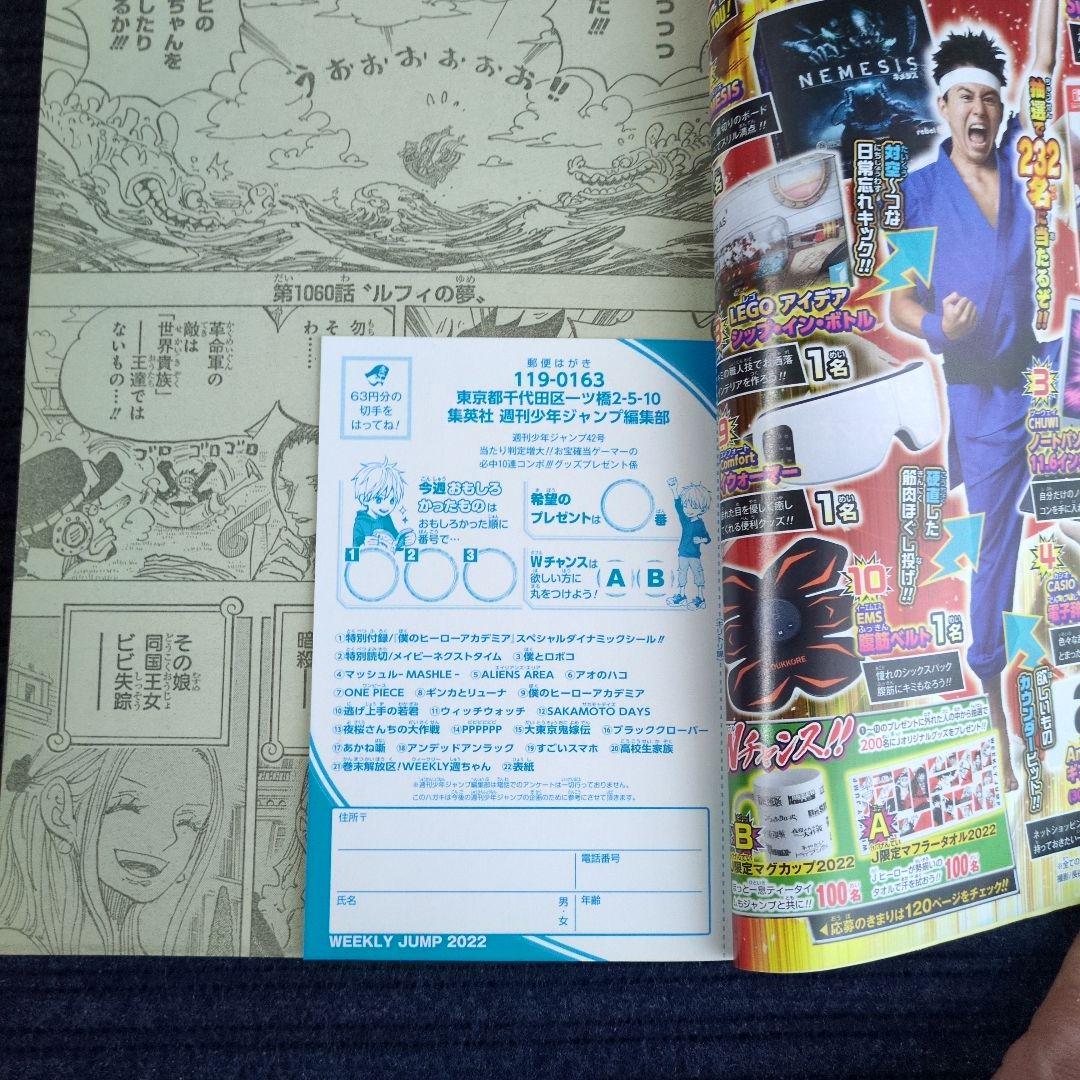 ビの
ちゃんを
したり
るか!!!
うおおおおおおお!!
第1060話 〝ルフィの夢〟
革命軍の
敵は
「世界貴族」
――王達では
ないもの…!!
その娘
同国王女
ビビ失踪
63円分の
切手を
はってね!
郵便はがき
119-0163
東京都千代田区一ツ橋2-5-10
集英社 週刊少年ジャンプ編集部
週刊少年ジャンプ42号
当たり判定増大!!お宝確当ゲーマーの
必中10連コンボ!!!グッズプレゼント係
今週おもしろ
かったものは
おもしろかった順に
番号で…
1 2 3
希望の
プレゼントは
番
Wチャンスは
欲しい方に
丸をつけよう!
A B
①特別付録/『僕のヒーローアカデミア』スペシャルダイナミックシール!!
②特別読切/メイビーネクストタイム ③僕とロボコ
④マッシュル-MASHLE- ⑤ALIENS AREA ⑥アオのハコ
⑦ONE PIECE ⑧ギンカとリューナ ⑨僕のヒーローアカデミア
⑩逃げ上手の若君 ⑪ウィッチウォッチ ⑫SAKAMOTO DAYS
⑬夜桜さんちの大作戦 ⑭PPPPPP ⑮大東京鬼嫁伝 ⑯ブラッククローバー
⑰あかね噺 ⑱アンデッドアンラック ⑲すごいスマホ ⑳高校生家族
㉑巻末解放区!WEEKLY週ちゃん ㉒表紙
※週刊少年ジャンプ編集部は電話でのアンケートは一切行っておりません。
このハガキは今後の週刊少年ジャンプの企画のために参考にさせて頂きます。
住所〒
電話番号
氏名
男・女
年齢
WEEKLY JUMP 2022
NEMESIS
ネメシス
抽選で
232名に当たるぞ!!
対空〜コな
日常忘れキック!!
LEGO アイデア
シップ・イン・ボトル
1名
1名
硬直した
筋肉ほぐし投げ!!
10
EMS
腹筋ベルト 1名
憧れのシックスパック
腹筋にキミもなろう!!
3
CHUWI
4
CASIO
欲しいもの
カウンターヒット!!
Wチャンス!!
200名にJオリジナルグッズをプレゼント!!
B
J限定マグカップ2022
100名
A
J限定マフラータオル2022
Jヒーローが勢揃いの
タオルで汗を拭おう!!
100名
◀応募のきまりは120ページをチェック!!